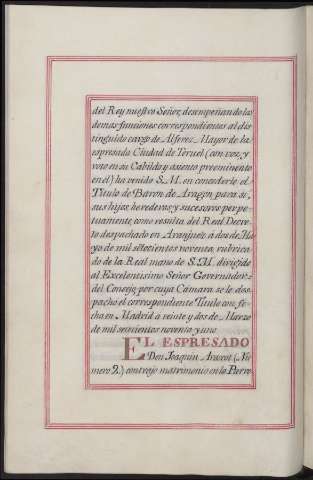 del Rey nuestro Señor, desempeñando las
demas funciones correspondientes al dis-
tinguido cargo de Alferes Mayor de la
espresada Ciudad de Teruel (con voz, y
voto en su Cabildo y asiento preeminente
en el) ha venido S. M. en concederle el
Titulo de Baron de Aragon para sí,
sus hijos, herederos, y sucesores perpe-
tuamente, como resulta del Real Decre-
to despachado en Aranjuez á dos de Ma-
yo de mil setecientos noventa, rubrica-
do de la Real mano de S. M. dirigido
al Excelentisimo Señor Governador
del Consejo por cuya Camara se le des-
pachó el correspondiente Titulo con fe-
cha en Madrid a veinte y dos de Marzo
de mil setecientos noventa y uno.
EL ESPRESADO
Don Joaquin Arascot (Nu-
mero 2.) contrajo matrimonio en la Parro-